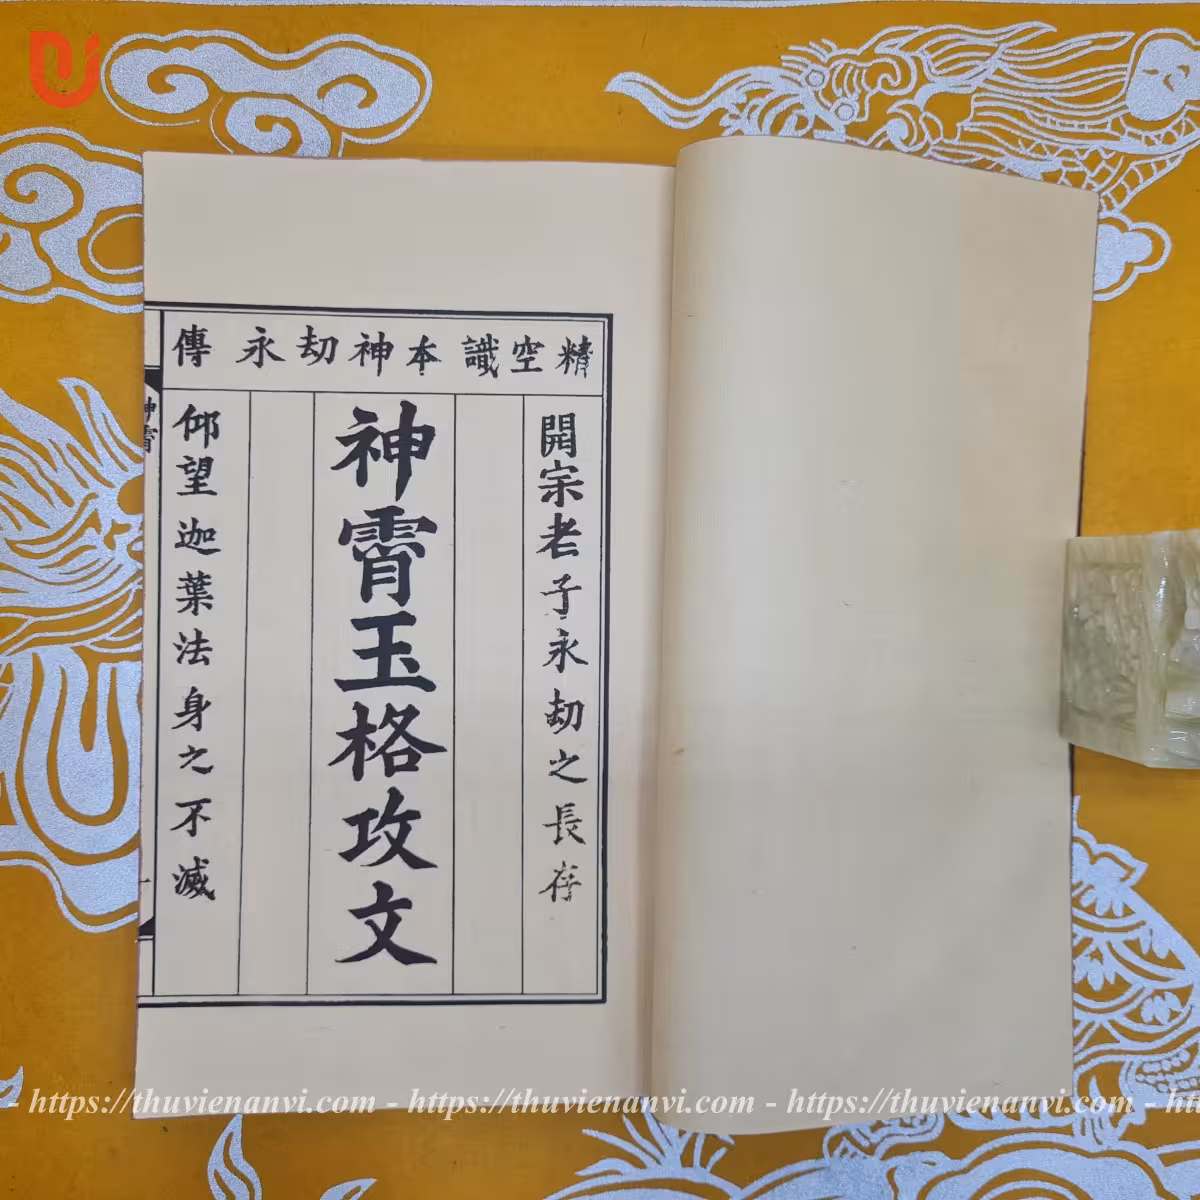 精空識本神劫永傳
開宗老子永劫之長存
神霄玉格攻文
仰望迦葉法身之不滅
神霄
- https://thuvienanvi.com - https://thuvienanvi.com - https://thuvienanvi.com - htt